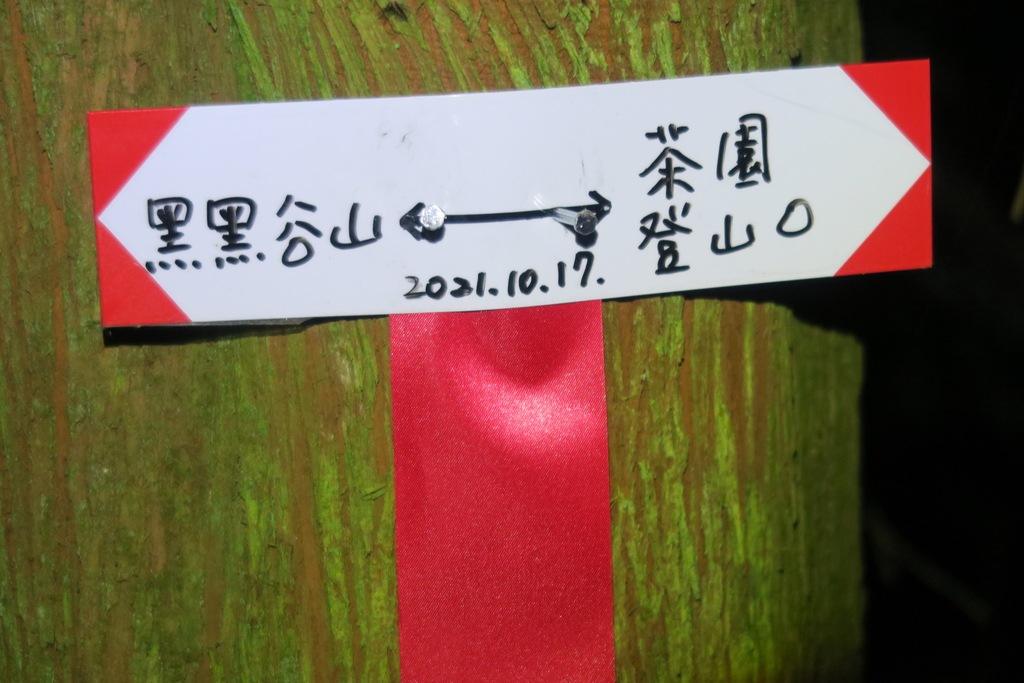 黑黑谷山 ↔ 茶園
登山口
2021.10.17.